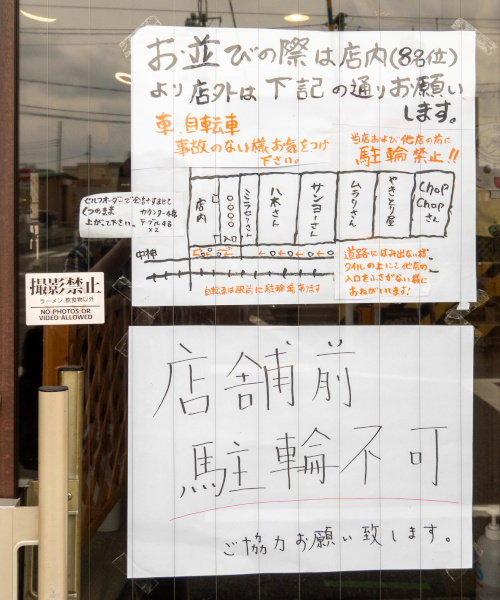 お並びの際は店内(8名位)
より店外は下記の通りお願い
します。
車、自転車
事故のない様お気をつけ
下さい。
当店および他店の前に
駐輪禁止!!
セルフオーダーで会計するとして
くつのまま
上がって下さい。
カウンター4席
テーブル4名
×2
店内
ミシンセンターさん
八木さん
サンヨーさん
ムラウさん
やきとり屋
Chop
Chop
さん
中神
自転車は駅前に駐輪場あります
道路にはみ出ない様
タイルの上にて他店の
入口をふさがない様に
おねがいします!
撮影禁止
ラーメン、飲食物以外
NO PHOTOS OR
VIDEO ALLOWED
店舗前
駐輪不可
ご協力お願い致します。